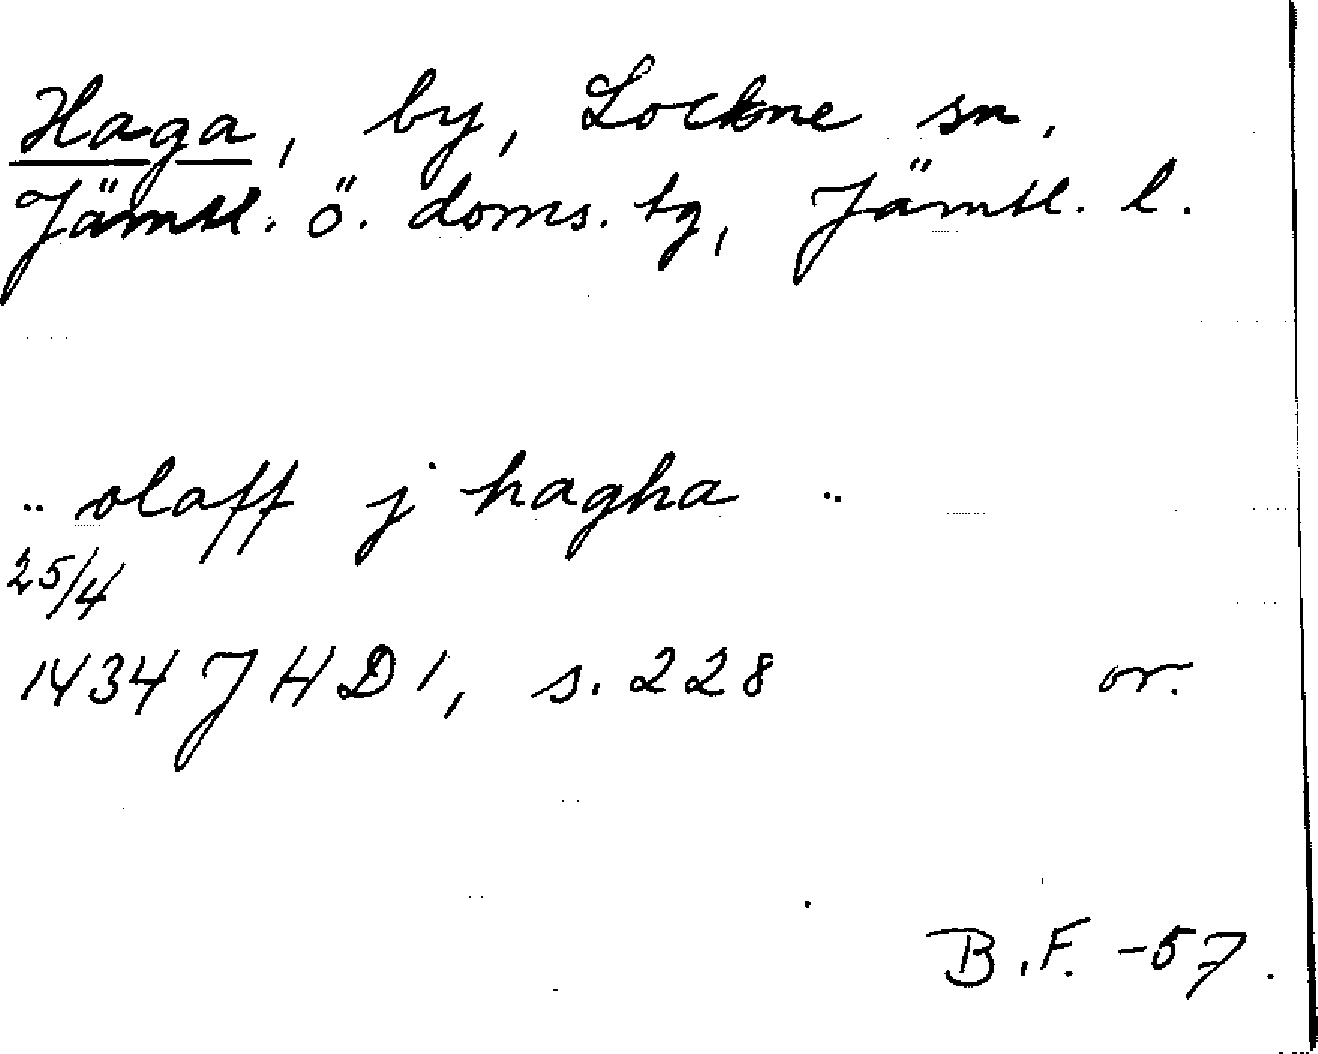 Haga, by, Lockne sn.
Jämtl. ö. doms. tg, Jämtl. l.
.. olaff j hagha ..
25/4
1434 JHD 1, s. 228 or.
B.F. -57.